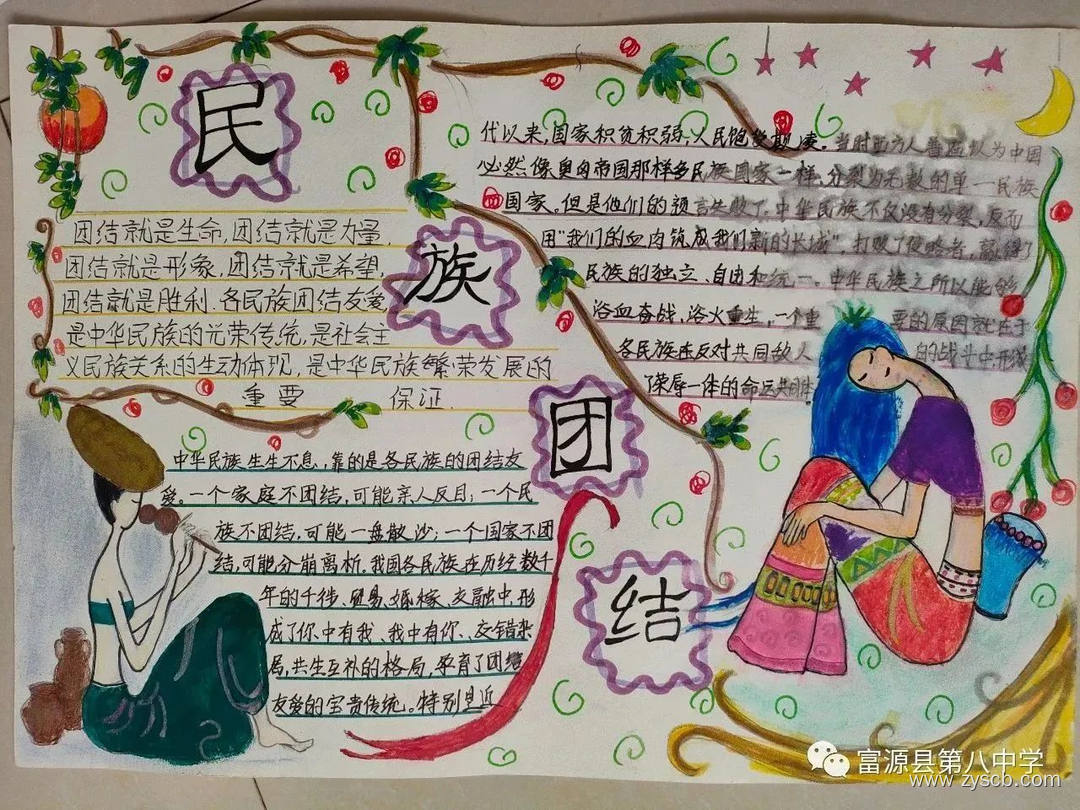 民
族
团
结
团结就是生命,团结就是力量,
团结就是形象,团结就是希望,
团结就是胜利、各民族团结友爱,
是中华民族的光荣传统,是社会主
义民族关系的生动体现,是中华民族繁荣发展的
重要 保证.
中华民族生生不息,靠的是各民族的团结友
爱。一个家庭不团结,可能亲人反目;一个民
族不团结,可能一盘散沙;一个国家不团
结,可能分崩离析.我国各民族在历经数千
年的千徙、贸易、婚嫁、交融中,形
成了你中有我、我中有你、交错杂
居,共生互补的格局,孕育了团结
友爱的宝贵传统。特别是近
代以来,国家积贫积弱,人民饱受欺凌。当时西方人普遍认为中国
必然像奥匈帝国那样多民族国家一样,分裂为无数的单一民族
国家。但是他们的预言失败了,中华民族不仅没有分裂,反而
用"我们的血肉筑成我们新的长城",打败了侵略者,赢得了
民族的独立、自由和统一。中华民族之所以能够
浴血奋战,浴火重生,一个重 要的原因就在于
各民族在反对共同敌人 的战斗中,形成
了荣辱一体的命运共同体
富源县第八中学
www.zyscb.com